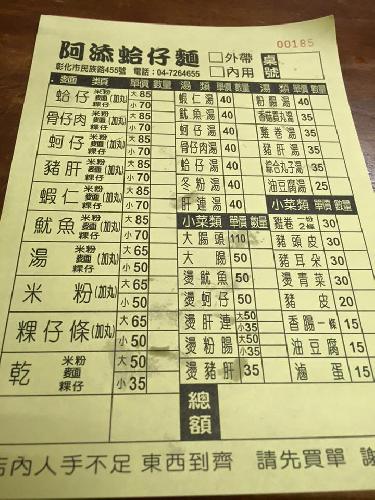 阿添蛤仔麵
□外帶
□內用
桌號
00185
彰化市民族路455號 電話:04-7264655
麵 類 單價 數量 湯 類 單價 數量 湯 類 單價 數量
蛤仔 米粉 麵 粿仔 (加丸) 大85 小70 蝦仁湯 40 粉腸湯 35
骨仔肉 米粉 麵 粿仔 (加丸) 大85 小70 魷魚湯 40 香菇丸湯 35
蚵仔 米粉 麵 粿仔 (加丸) 大85 小70 蚵仔湯 40 雞卷湯 35
豬肝 米粉 麵 粿仔 (加丸) 大85 小70 骨仔肉湯 40 豬肝湯 35
蝦仁 米粉 麵 粿仔 (加丸) 大85 小70 蛤仔湯 40 綜合丸子湯 35
魷魚 米粉 麵 粿仔 (加丸) 大85 小70 冬粉湯 40 油豆腐湯 25
肝連湯 40 小菜類 單價 數量
湯 米粉 麵 粿仔 (加丸) 大65 小50 小菜類 單價 數量 雞卷 一份2條 30
大腸頭 110 豬頭皮 30
米 粉(加丸) 大65 小50 大腸 50 豬耳朵 30
燙魷魚 50 燙青菜 30
粿仔條(加丸) 大65 小50 燙蚵仔 50 豬皮 20
燙肝連 大50 小35 香腸一條 15
乾 米粉 麵 粿仔 大50 小35 燙粉腸 大50 小35 油豆腐 15
燙豬肝 大50 小35 滷蛋 15
總額
店內人手不足 東西到齊 請先買單 謝